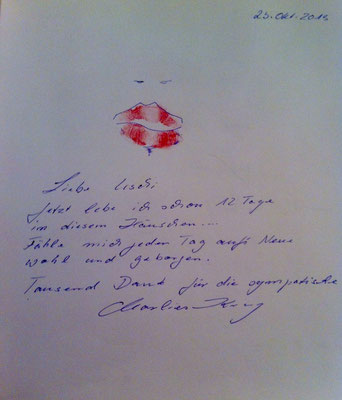 23. Okt. 2013
Liebe Uschi
Jetzt lebe ich schon 12 Tage
in diesem Häuschen...
Fühle mich jeden Tag aufs Neue
wohl und geborgen.
Tausend Dank für die sympatische